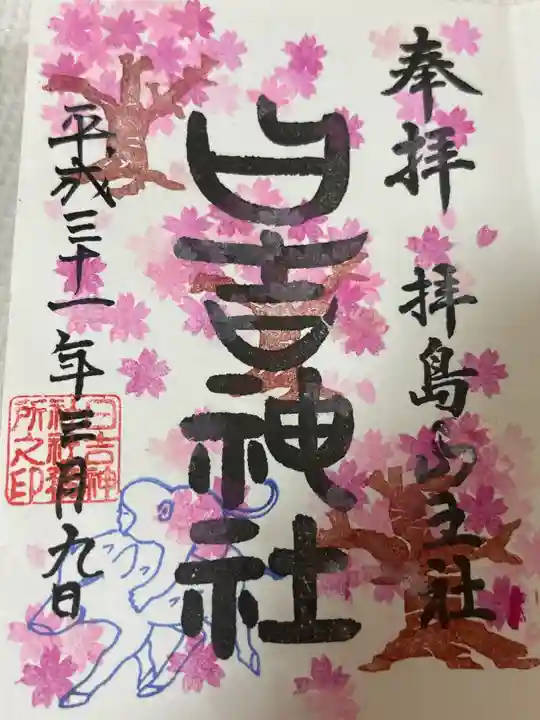 奉拝 拝島山王社
日吉神社
平成三十一年三月九日
日吉神
社社務
所之印